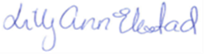 Lilly Ann Ekstad